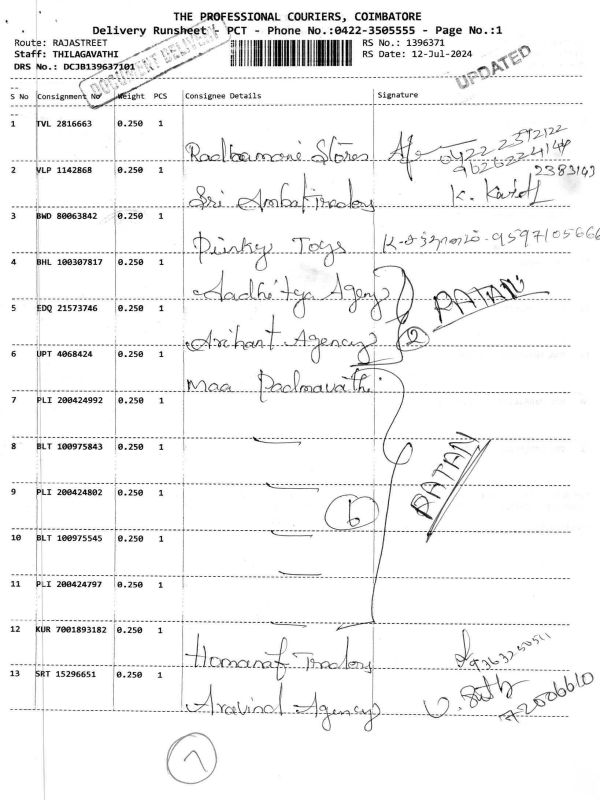 THE PROFESSIONAL COURIERS, COIMBATORE
Delivery Runsheet - PCT - Phone No.:0422-3505555 - Page No.:1
Route: RAJASTREET
RS No.: 1396371
Staff: THILAGAVATHI
RS Date: 12-Jul-2024
DRS No.: DCJB139637101
DOCUMENT DELIVERY
UPDATED
S No Consignment No Weight PCS Consignee Details Signature
1 TVL 2816663 0.250 1
Radhamani Stores 0422 2392122
9626224144
2 VLP 1142868 0.250 1 2383143
Sri Ambal Traders
3 BWD 80063842 0.250 1
Pinky Toys 9597105666
4 BHL 100307817 0.250 1
Aadhitya Agency RATAN
5 EDQ 21573746 0.250 1
Arihant Agency 2
6 UPT 4068424 0.250 1
Maa Padmavathi
7 PLI 200424992 0.250 1
8 BLT 100975843 0.250 1
RATAN
9 PLI 200424802 0.250 1
6
10 BLT 100975545 0.250 1
11 PLI 200424797 0.250 1
12 KUR 7001893182 0.250 1
Traders 9363250511
13 SRT 15296651 0.250 1
Aravind Agency
7